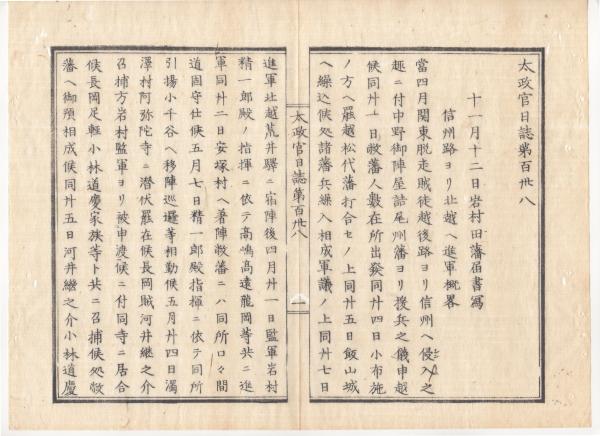 太政官日誌第百卅八
十一月十二日岩村田藩届書寫
信州路ヨリ北越ヘ進軍概畧
當四月関東脱走賊徒越後路ヨリ信州ヘ侵入之
趣ニ付中野御陣屋詰尾州藩ヨリ援兵之儀申越
候同廿一日敝藩人數在所出發同廿四日小布施
ノ方ヘ罷越松代藩打合セノ上同廿五日飯山城
ヘ繰込候処諸藩兵繰入相成軍議ノ上同廿七日
太政官日誌第百卅八
一
進軍北越荒井驛ニ宿陣後四月廿一日監軍岩村
精一郎殿ノ指揮ニ依テ高嶋高遠龍岡等共ニ進
軍同廿二日安塚村ヘ着陣敝藩ニハ同所口々間
道固守仕候五月七日精一郎殿指揮ニ依テ同所
引揚小千谷ヘ移陣巡邏等相勤候五月廿四日濁
澤村阿弥陀寺ニ潜伏罷在候長岡賊河井継之介
召捕方岩村監軍ヨリ被申渡候ニ付同寺ニ居合
候長岡足軽小林道慶家族等ト共ニ召捕候処敝
藩ヘ御預相成候同廿五日河井継之介小林道慶